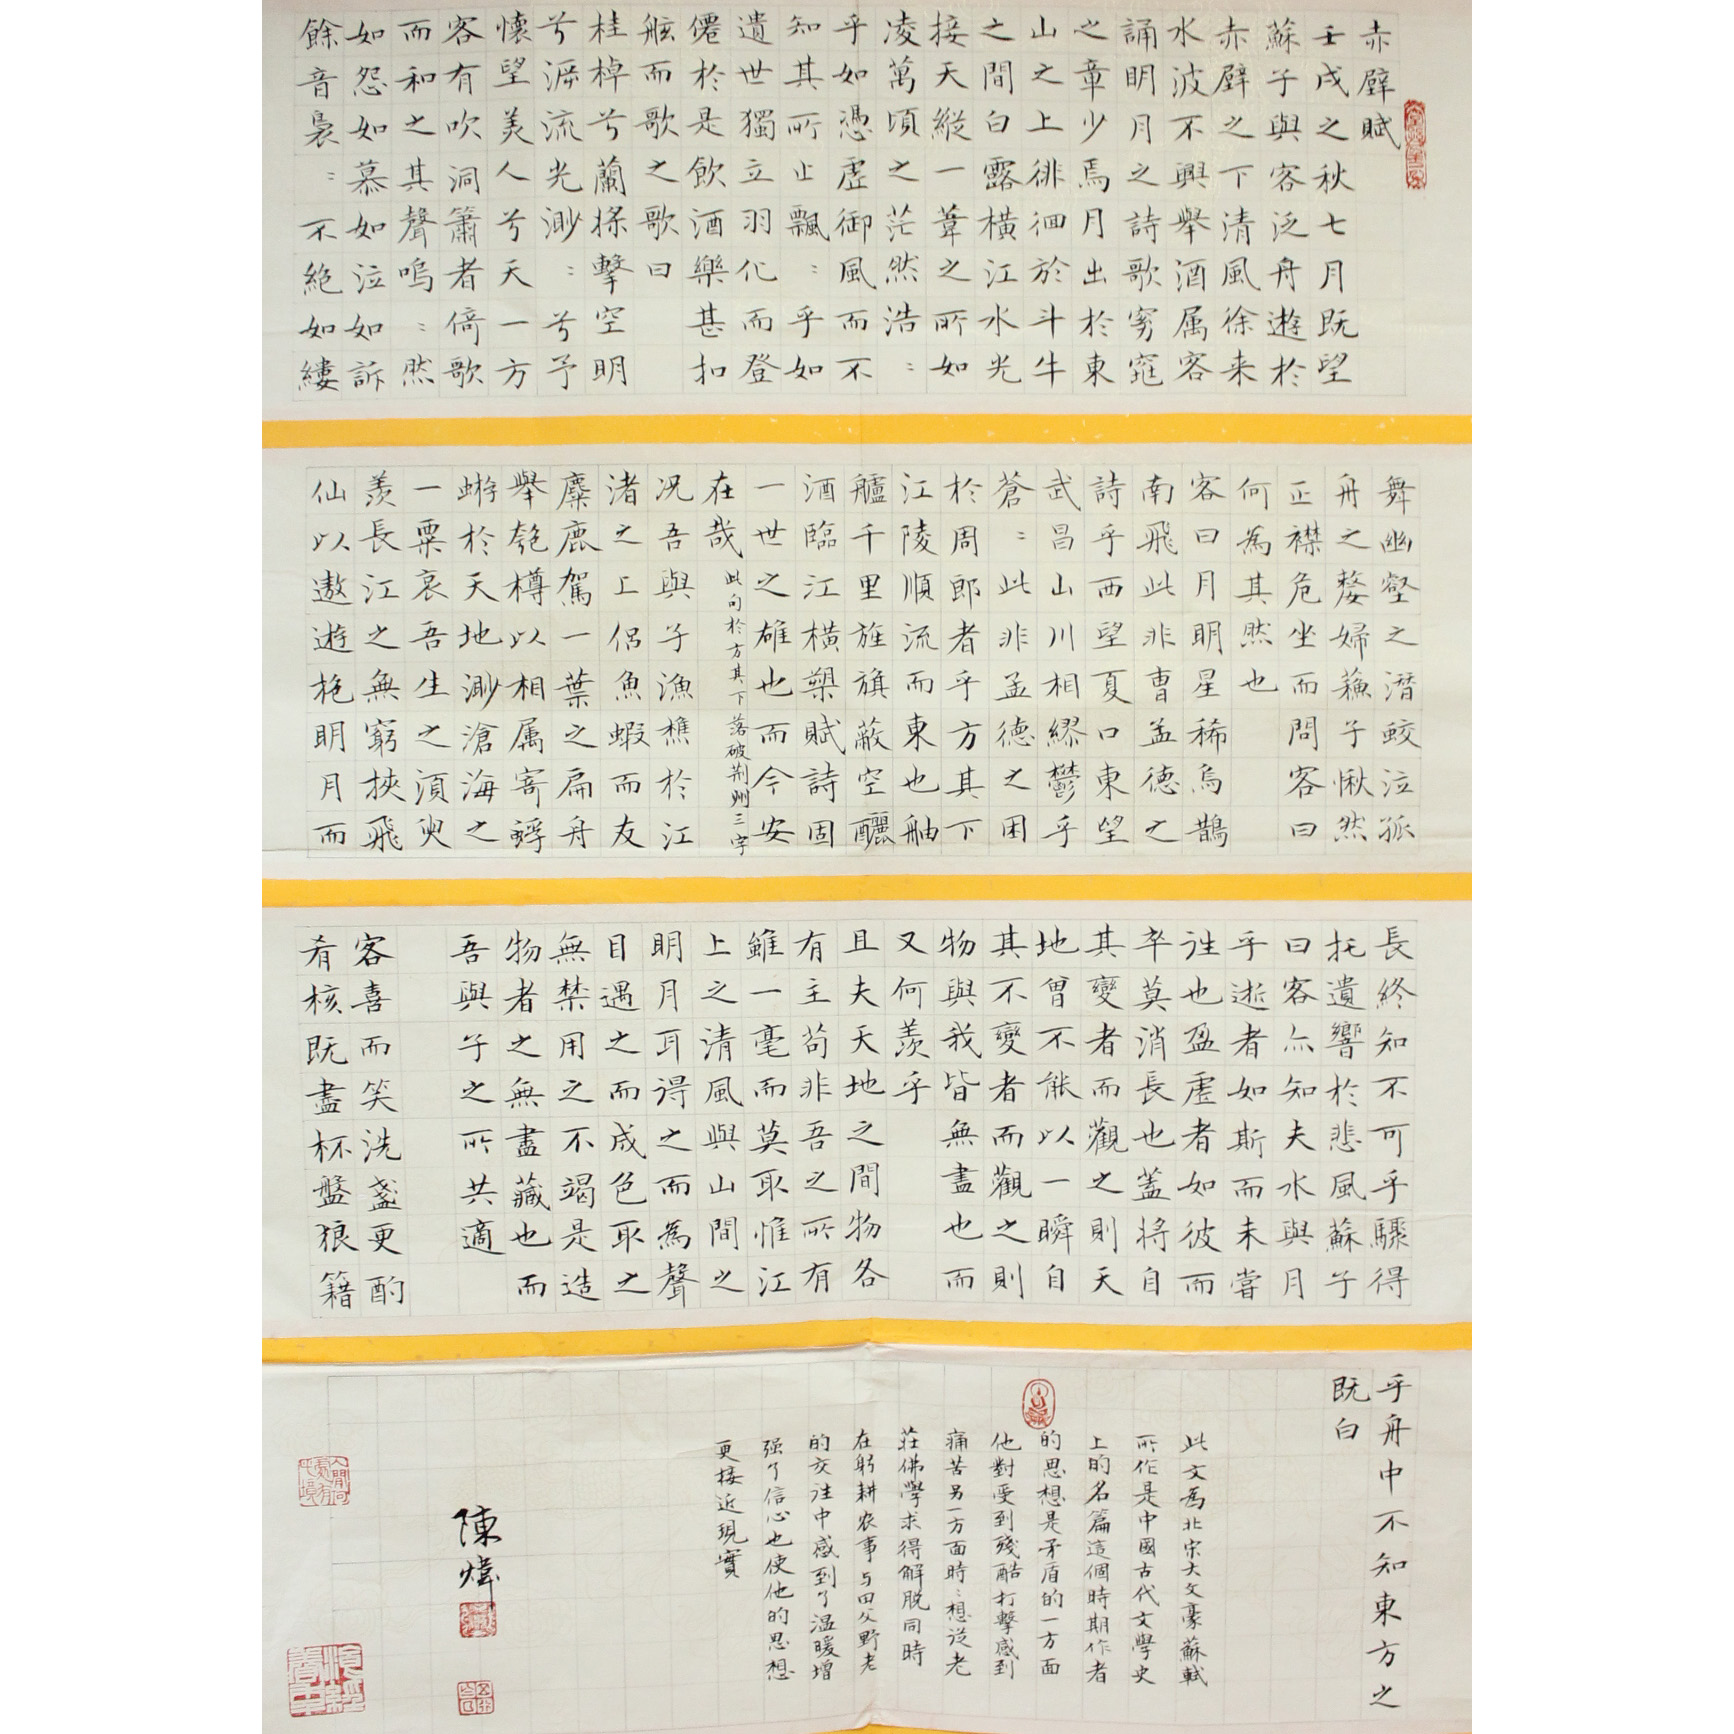 赤壁賦
壬戌之秋七月既望
蘇子與客泛舟遊於
赤壁之下清風徐来
水波不興舉酒属客
誦明月之詩歌窈窕
之章少焉月出於東
山之上徘徊於斗牛
之間白露橫江水光
接天縱一葦之所如
凌萬頃之茫然浩:
乎如憑虛御風而不
知其所止飄:乎如
遺世獨立羽化而登
僊於是飲酒樂甚扣
舷而歌之歌曰
桂棹兮蘭槳擊空明
兮泝流光渺:兮予
懷望美人兮天一方
客有吹洞簫者倚歌
而和之其聲嗚:然
如怨如慕如泣如訴
餘音裊:不絕如縷
舞幽壑之潛蛟泣孤
舟之嫠婦蘇子愀然
正襟危坐而問客曰
何為其然也
客曰月明星稀烏鵲
南飛此非曹孟德之
詩乎西望夏口東望
武昌山川相繆鬱乎
蒼:此非孟德之困
於周郎者乎方其下
江陵順流而東也舳
艫千里旌旗蔽空釃
酒臨江橫槊賦詩固
一世之雄也而今安
在哉此句於方其下落破荆州三字
況吾與子漁樵於江
渚之上侶魚蝦而友
麋鹿駕一葉之扁舟
舉匏樽以相属寄蜉
蝣於天地渺滄海之
一粟哀吾生之須臾
羨長江之無窮挾飛
仙以遨遊抱明月而
長終知不可乎驟得
托遺響於悲風蘇子
曰客亦知夫水與月
乎逝者如斯而未嘗
往也盈虛者如彼而
卒莫消長也蓋將自
其變者而觀之則天
地曾不能以一瞬自
其不變者而觀之則
物與我皆無盡也而
又何羨乎
且夫天地之間物各
有主苟非吾之所有
雖一毫而莫取惟江
上之清風與山間之
明月耳得之而為聲
目遇之而成色取之
無禁用之不竭是造
物者之無盡藏也而
吾與子之所共適
客喜而笑洗盞更酌
肴核既盡杯盤狼籍
乎舟中不知東方之
既白
此文為北宋大文豪蘇軾
所作是中國古代文學史
上的名篇這個時期作者
的思想是矛盾的一方面
他對受到殘酷打擊感到
痛苦另一方面時:想從老
莊佛學求得解脫同時
在躬耕农事与田父野老
的交往中感到了温暖增
强了信心也使他的思想
更接近現實
陳煒